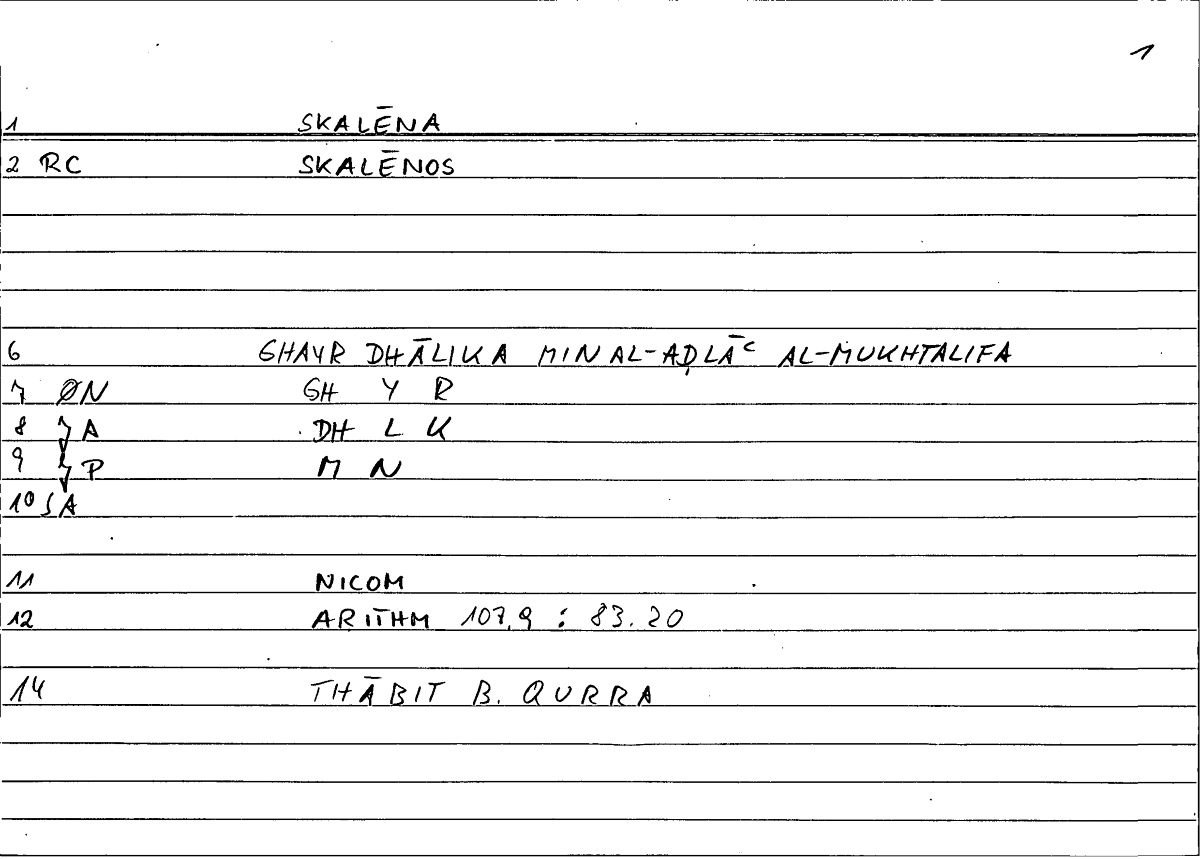 1
1 SKALĒNA
2 RC SKALĒNOS
6 GHAYR DHĀLIKA MIN AL-AḌLĀʿ AL-MUKHTALIFA
7 ØN GH Y R
8 A DH L K
9 P M N
10 SA
11 NICOM
12 ARITHM 107,9 : 83.20
14 THĀBIT B. QURRA